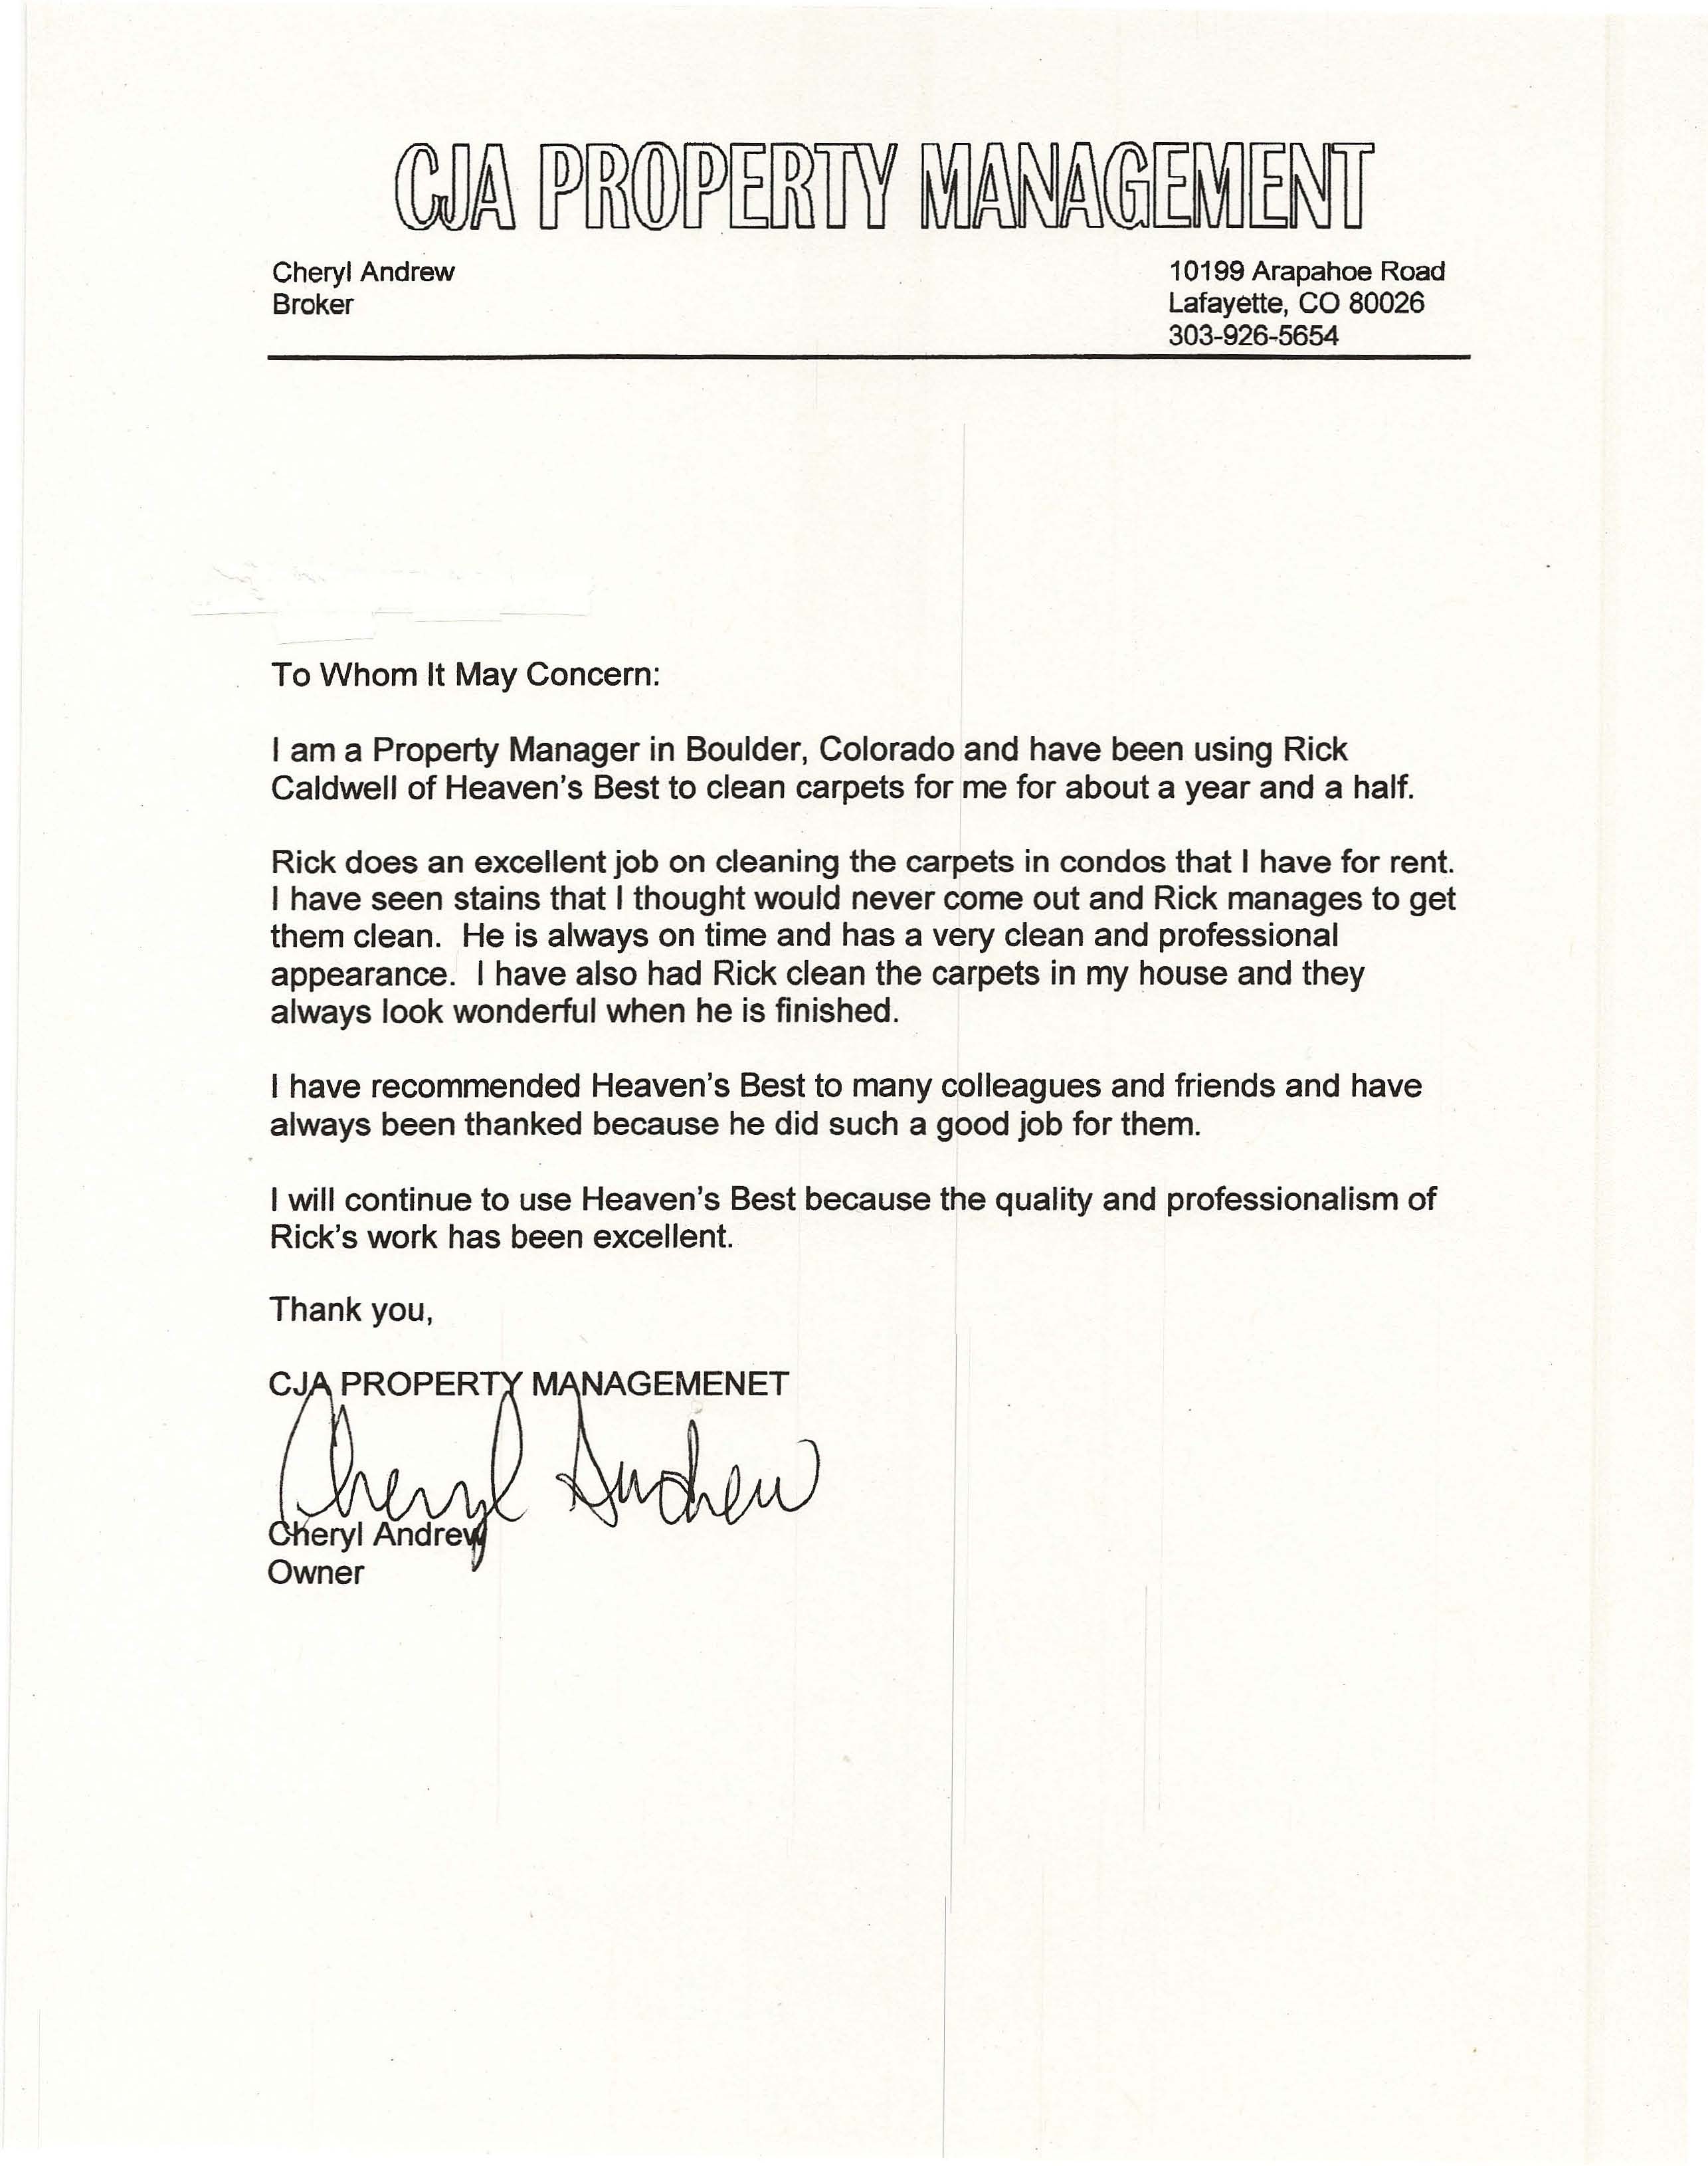 CJA PROPERTY MANAGEMENT
Cheryl Andrew
Broker
10199 Arapahoe Road
Lafayette, CO 80026
303-926-5654
To Whom It May Concern:
I am a Property Manager in Boulder, Colorado and have been using Rick
Caldwell of Heaven's Best to clean carpets for me for about a year and a half.
Rick does an excellent job on cleaning the carpets in condos that I have for rent.
I have seen stains that I thought would never come out and Rick manages to get
them clean.  He is always on time and has a very clean and professional
appearance.  I have also had Rick clean the carpets in my house and they
always look wonderful when he is finished.
I have recommended Heaven's Best to many colleagues and friends and have
always been thanked because he did such a good job for them.
I will continue to use Heaven's Best because the quality and professionalism of
Rick's work has been excellent.
Thank you,
CJA PROPERTY MANAGEMENET
Cheryl Andrew
Cheryl Andrew
Owner